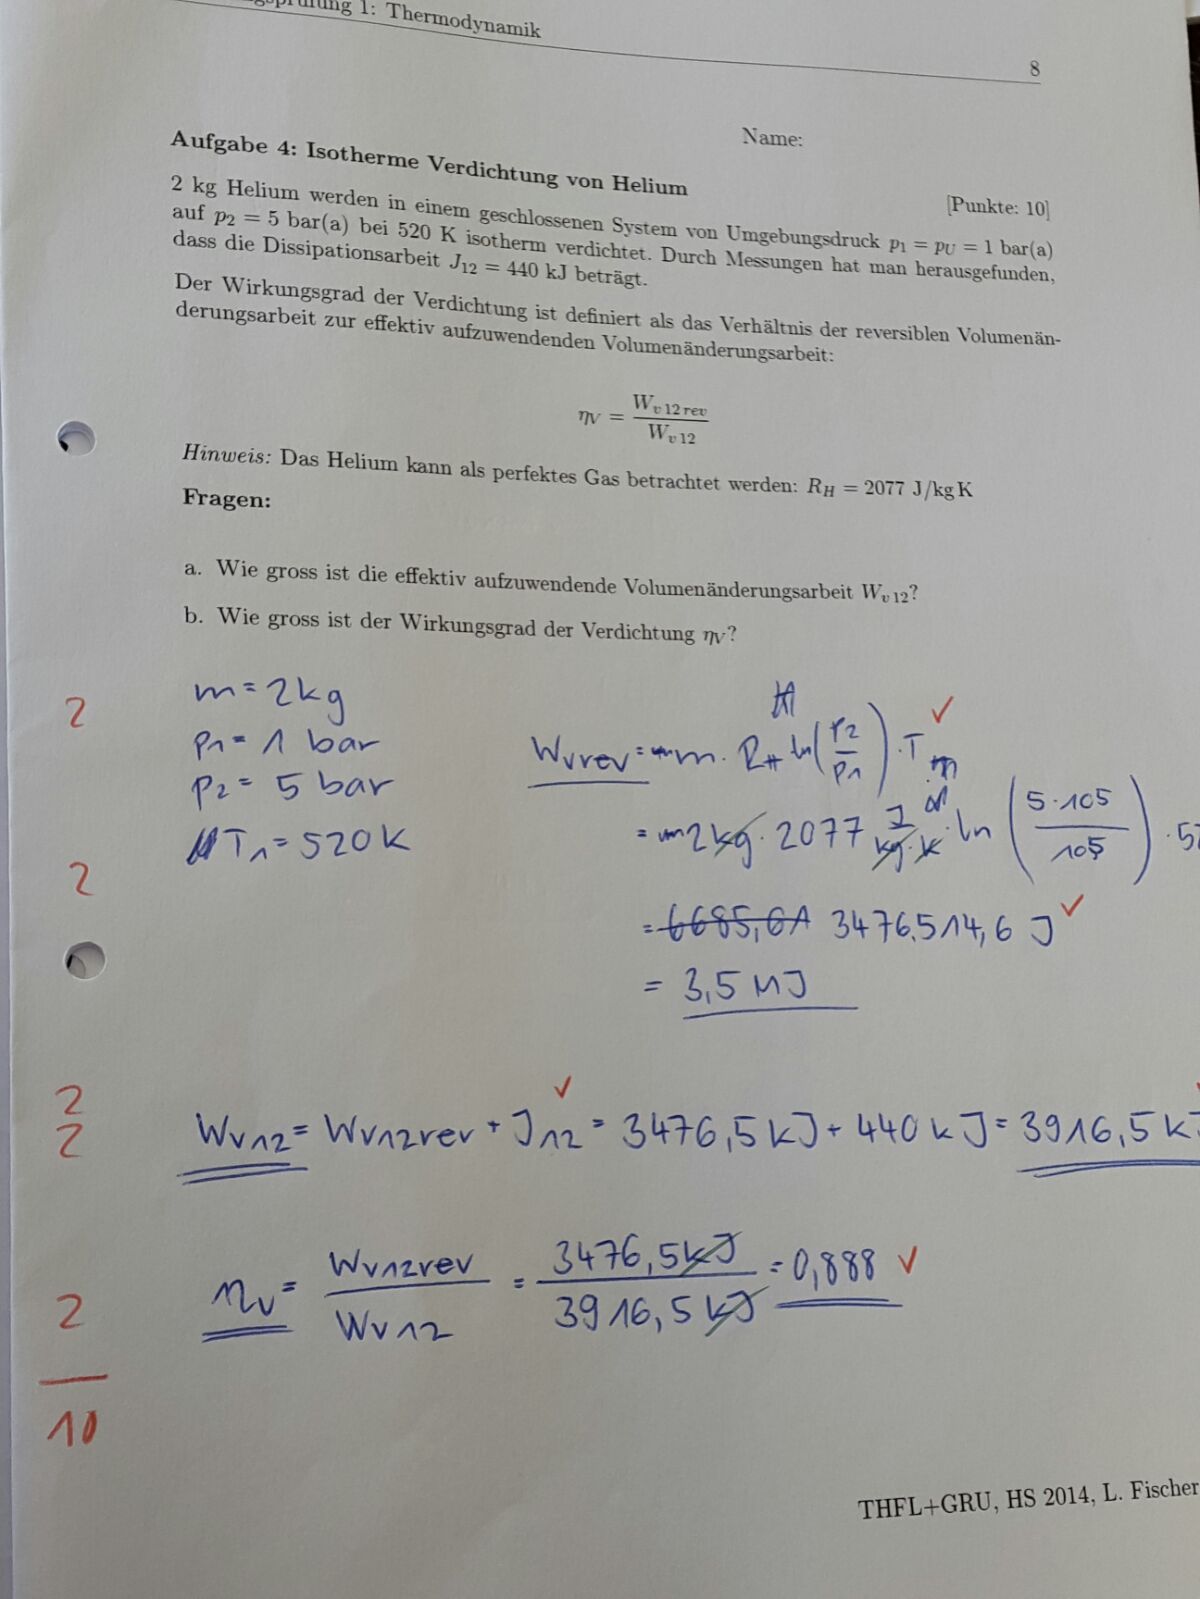 1: Thermodynamik
8
Name:
Aufgabe 4: Isotherme Verdichtung von Helium
[Punkte: 10]
2 kg Helium werden in einem geschlossenen System von Umgebungsdruck p₁ = p_U = 1 bar(a)
auf p₂ = 5 bar(a) bei 520 K isotherm verdichtet. Durch Messungen hat man herausgefunden,
dass die Dissipationsarbeit J₁₂ = 440 kJ beträgt.
Der Wirkungsgrad der Verdichtung ist definiert als das Verhältnis der reversiblen Volumenän-
derungsarbeit zur effektiv aufzuwendenden Volumenänderungsarbeit:
η_V = W_v 12 rev / W_v 12
Hinweis: Das Helium kann als perfektes Gas betrachtet werden: R_H = 2077 J/kg K
Fragen:
a. Wie gross ist die effektiv aufzuwendende Volumenänderungsarbeit W_v 12?
b. Wie gross ist der Wirkungsgrad der Verdichtung η_V?
2
m = 2 kg
p1 = 1 bar
p2 = 5 bar
T1 = 520 K
Wvrev = m · R_H ln(p2/p1) · T ✓
= 2kg · 2077 J/kg·K · ln(5·10⁵/10⁵) · 52
2
= 6685,61 3476.514,6 J ✓
= 3,5 MJ
2
2
Wv12 = Wv12rev + J12 ✓ = 3476,5 kJ + 440 kJ = 3916,5 kJ
2
ηv = Wv12rev / Wv12 = 3476,5 kJ / 3916,5 kJ = 0,888 ✓
10
THFL+GRU, HS 2014, L. Fischer